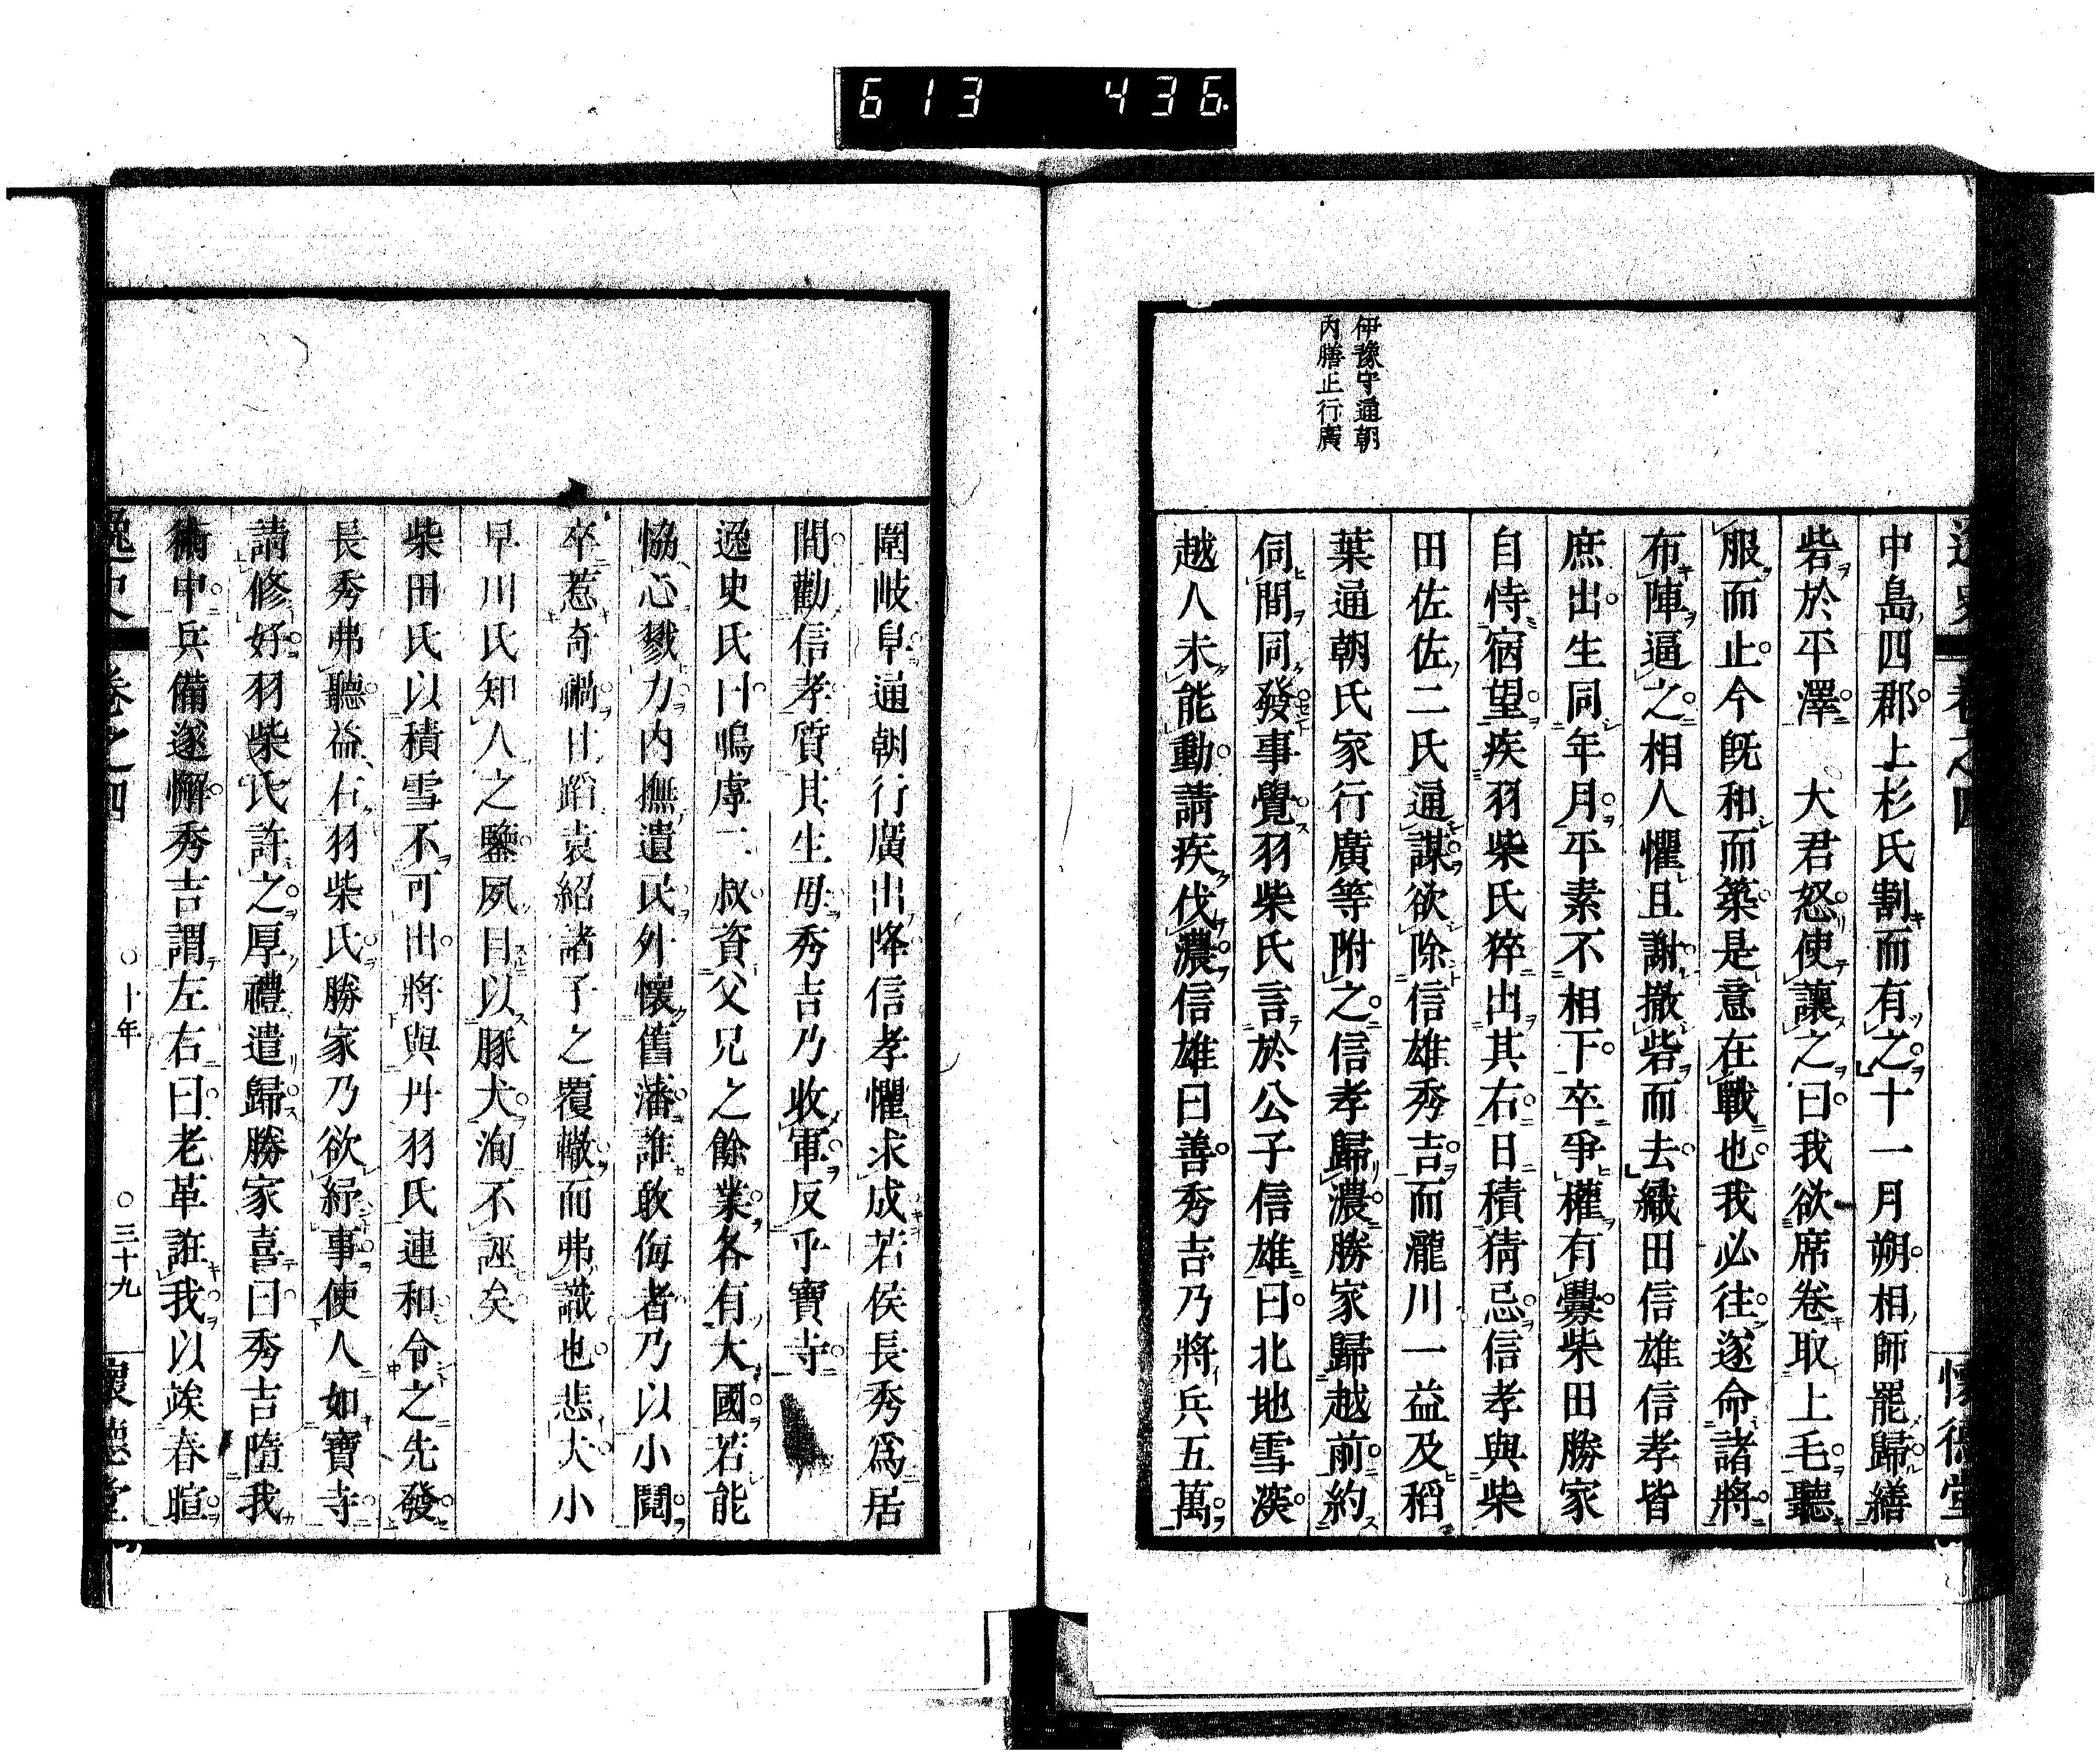 613 436
逸史 卷之四 懷德堂
伊豫守通朝
內膳正行廣
中島四郡上杉氏割而有之十一月朔相師罷歸繕
砦於平澤 大君怒使讓之曰我欲席卷取上毛聽
服而止今旣和而築是意在戰也我必往遂命諸將
布陣逼之相人懼且謝撤砦而去織田信雄信孝皆
庶出生同年月平素不相下卒爭權有釁柴田勝家
自恃宿望疾羽柴氏猝出其右日積猜忌信孝與柴
田佐佐二氏通謀欲除信雄秀吉而瀧川一益及稻
葉通朝氏家行廣等附之信孝歸濃勝家歸越前約
伺間同發事覺羽柴氏言於公子信雄曰北地雪深
越人未能動請疾伐濃信雄曰善秀吉乃將兵五萬
圍岐阜通朝行廣出降信孝懼求成若侯長秀爲居
間勸信孝質其生母秀吉乃收軍反乎寶寺
逸史氏曰嗚虖二叔資父兄之餘業各有大國若能
恊心戮力內撫遺民外懷舊藩誰敢侮者乃以小鬩
卒惹奇禍甘蹈袁紹諸子之覆轍而弗識也悲大小
早川氏知人之鑒夙目以豚犬洵不誣矣
柴田氏以積雪不可出將與丹羽氏連和令之先發
長秀弗聽益右羽柴氏勝家乃欲紓事使人如寶寺
請修好羽柴氏許之厚禮遣歸勝家喜曰秀吉墮我
術中兵備遂懈秀吉謂左右曰老革誑我以竢春暄
逸史 卷之四 ○十年 ○三十九 懷德堂